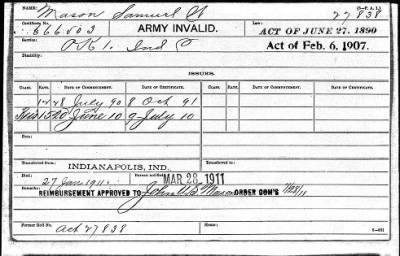 NAME: Mason Samuel W (3-P. A. I.)
27838
Certificate No. 666503 ARMY INVALID. Law: ACT OF JUNE 27, 1890
Service: Ind Act of Feb. 6, 1907.
Disability:
ISSUES.
CLASS. RATE. DATE OF COMMENCEMENT. DATE OF CERTIFICATE. CLASS. RATE. DATE OF COMMENCEMENT. DATE OF CERTIFICATE.
July 90 8 Oct 91
June 10 9 July 10
Died:
Transferred from: Transferred to:
INDIANAPOLIS, IND.
Died: 27 Jan 1911 MAR 28 1911
Remarks: REIMBURSEMENT APPROVED TO John Mason ORDER COM'S
Former Roll No. Act 27838 Home: